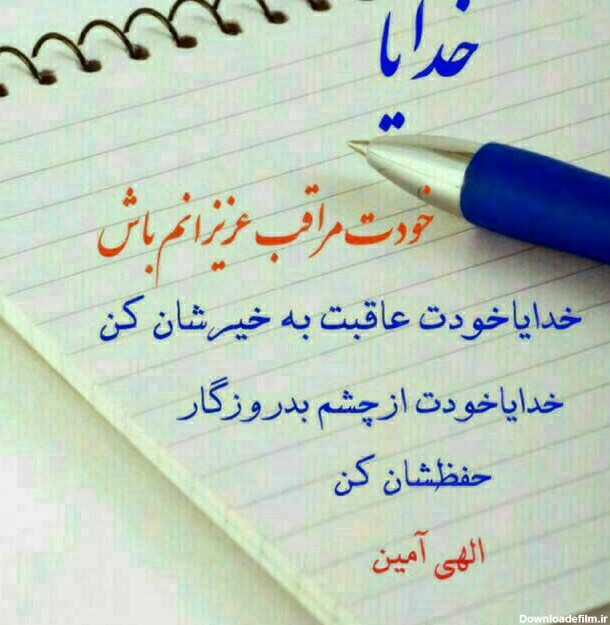 خدایا
خودت مراقب عزیزانم باش
خدایاخودت عاقبت به خیرشان کن
خدایاخودت ازچشم بدروزگار
حفظشان کن
الهی آمین
Downloadefilm.ir